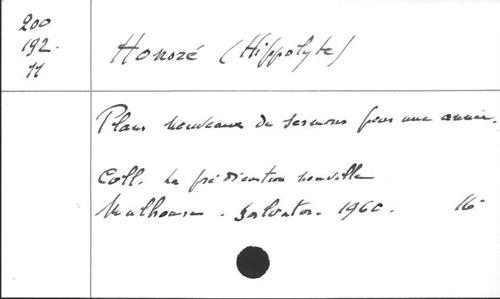 200
192.
11
Honoré (Hippolyte)
Plans nouveaux de sermons pour une année.
Coll. La prédication nouvelle
Mulhouse. Salvator. 1960. 16-